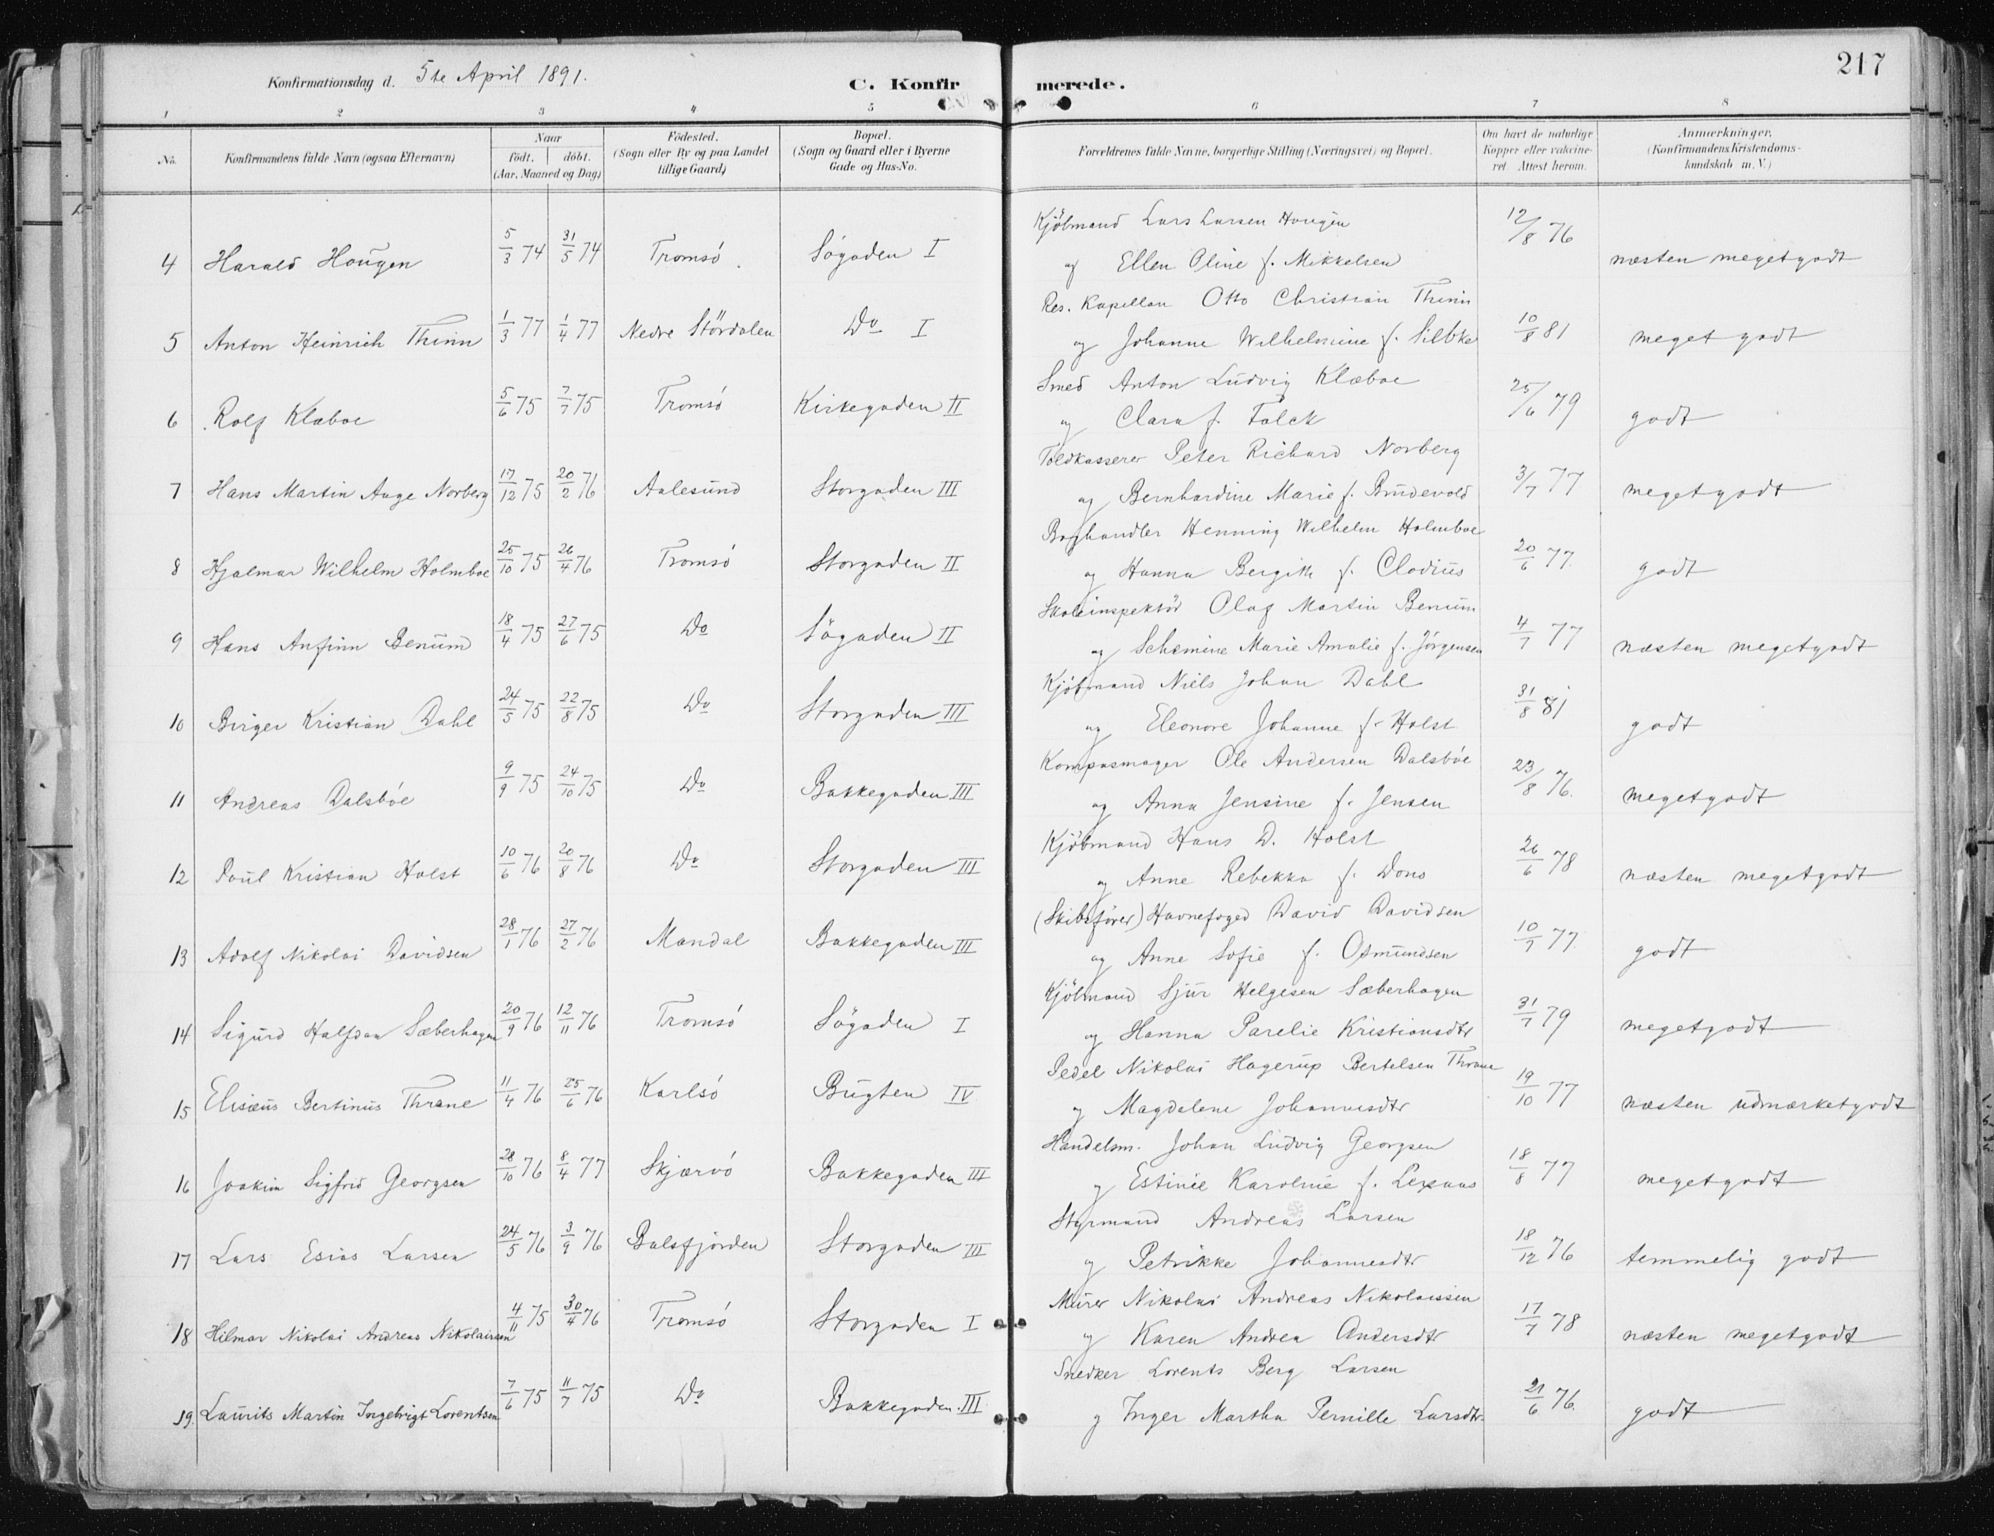 217
Konfirmationsdag d. 5te April 1891.
C. Konfirmerede.
1 2 3 4 5 6 7 8
No. Konfirmandens fulde Navn (ogsaa Efternavn) Naar födt. döbt. (Aar, Maaned og Dag) Födested. (Sogn eller By og paa Landet tillige Gaard) Bopæl. (Sogn og Gaard eller i Byerne Gade og Hus-No. Forældrenes fulde Navne, borgerlige Stilling (Næringsvei) og Bopæl. Om havt de naturlige Kopper eller vakcineret. Attest herom. Anmærkninger. (Konfirmandens Kristendomskundskab m. V.)
Kjöbmand Lars Larsen Hougen
4 Harald Hougen 5/3 74 31/5 74 Tromsö Sögaden I og Ellen Oline f. Mikkelsen 12/8 76 næsten megetgodt
Res. Kapellan Otto Christian Thinn
5 Anton Heinrich Thinn 1/3 77 1/4 77 Nedre Stördalen Do I og Johanne Wilhelmine f. 10/8 81 meget godt
Smed Anton Ludvig Klæboe
6 Rolf Klæboe 5/6 75 7/7 75 Tromsö Kirkegaden II og Clara f. Falck 25/6 79 godt
Toldkasserer Peter Richard Norberg
7 Hans Martin Aage Norberg 17/12 75 20/2 76 Aalesund Storgaden III og Bernhardine Marie f. Brudevold 3/7 77 megetgodt
Boghandler Henning Wilhelm Holmboe
8 Hjalmar Wilhelm Holmboe 25/10 75 26/4 76 Tromsö Storgaden II og Hanna Bergith f. Clodius 20/6 77. godt
Skoleinspektör Olaf Martin Benum
9 Hans Anfinn Benum 18/4 75 27/6 75 Do Sögaden II og Schemine Marie Amalie f. Jörgensen 4/7 77 næsten megetgodt
Kjöbmand Niels Johan Dahl
10 Birger Kristian Dahl 24/5 75 22/8 75 Do Storgaden III og Eleonore Johanne f. Holst 31/8 81 godt
Kompasmager Ole Andersen Dalsböe
11 Andreas Dalsböe 9/9 75 24/10 75 Do Bakkegaden III og Anna Jensine f. Jensen 23/8 76. megetgodt
Kjöbmand Hans D. Holst
12 Poul Kristian Holst 10/6 76 20/8 76 Do Storgaden III og Anne Rebekka f. Dons 26/6 78 næsten megetgodt
(Skibsförer) Havnefoged David Davidsen
13 Adolf Nikolai Davidsen 28/1 76 27/2 76 Mandal Bakkegaden III og Anne Sofie f. Osmundsen 10/7 77 godt
Kjöbmand Sjur Helgesen Sæberhagen
14 Sigurd Halfdan Sæberhagen 20/9 76 12/11 76 Tromsö Sögaden I og Hanna Parelie Kristiansdtr 31/7 79 megetgodt
Pedel Nikolai Hagerup Bertelsen Thrane
15 Elisæus Bertinus Thrane 11/4 76 25/6 76 Karlsö Bugten IV og Magdalene Johannesdtr 19/10 77 næsten udmærketgodt
Handelsm. Johan Ludvig Georgsen
16 Joakim Sigfrid Georgsen 28/10 76 8/4 77 Skjærvö Bakkegaden III og Estinie Karoline f. 18/8 77 megetgodt
Styrmand Andreas Larsen
17 Lars Esias Larsen 24/5 76 3/9 76 Balsfjorden Storgaden III og Petrikke Johannesdtr 18/12 76 temmelig godt
Murer Nikolai Andreas Nikolaissen
18 Hilmar Nikolai Andreas Nikolaissen 4/11 75 30/4 76 Tromsö Storgaden I og Karen Andrea Andersdtr 17/7 78 næsten megetgodt
Snedker Lorents Berg Larsen
19. Laurits Martin Ingebrigt Lorentsen 7/6 75 11/7 75 Do Bakkegaden III og Inger Martha Pernille Larsdtr. 21/6 76. godt